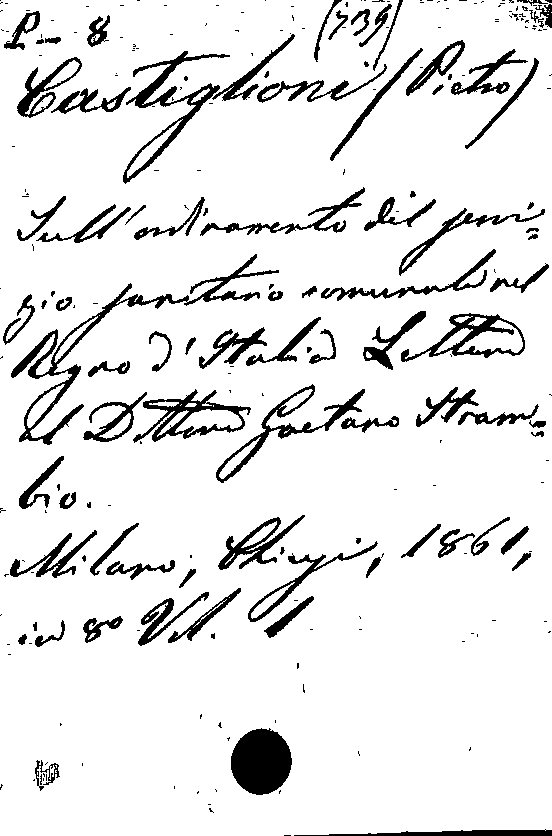 P – 8 (739)
Castiglioni (Pietro)
Sull'ordinamento del servi=
zio sanitario comunale nel
Regno d'Italia Lettera
al Dottore Gaetano Stram=
bio.
Milano, Chiusi, 1861,
in 8º Vol. 1